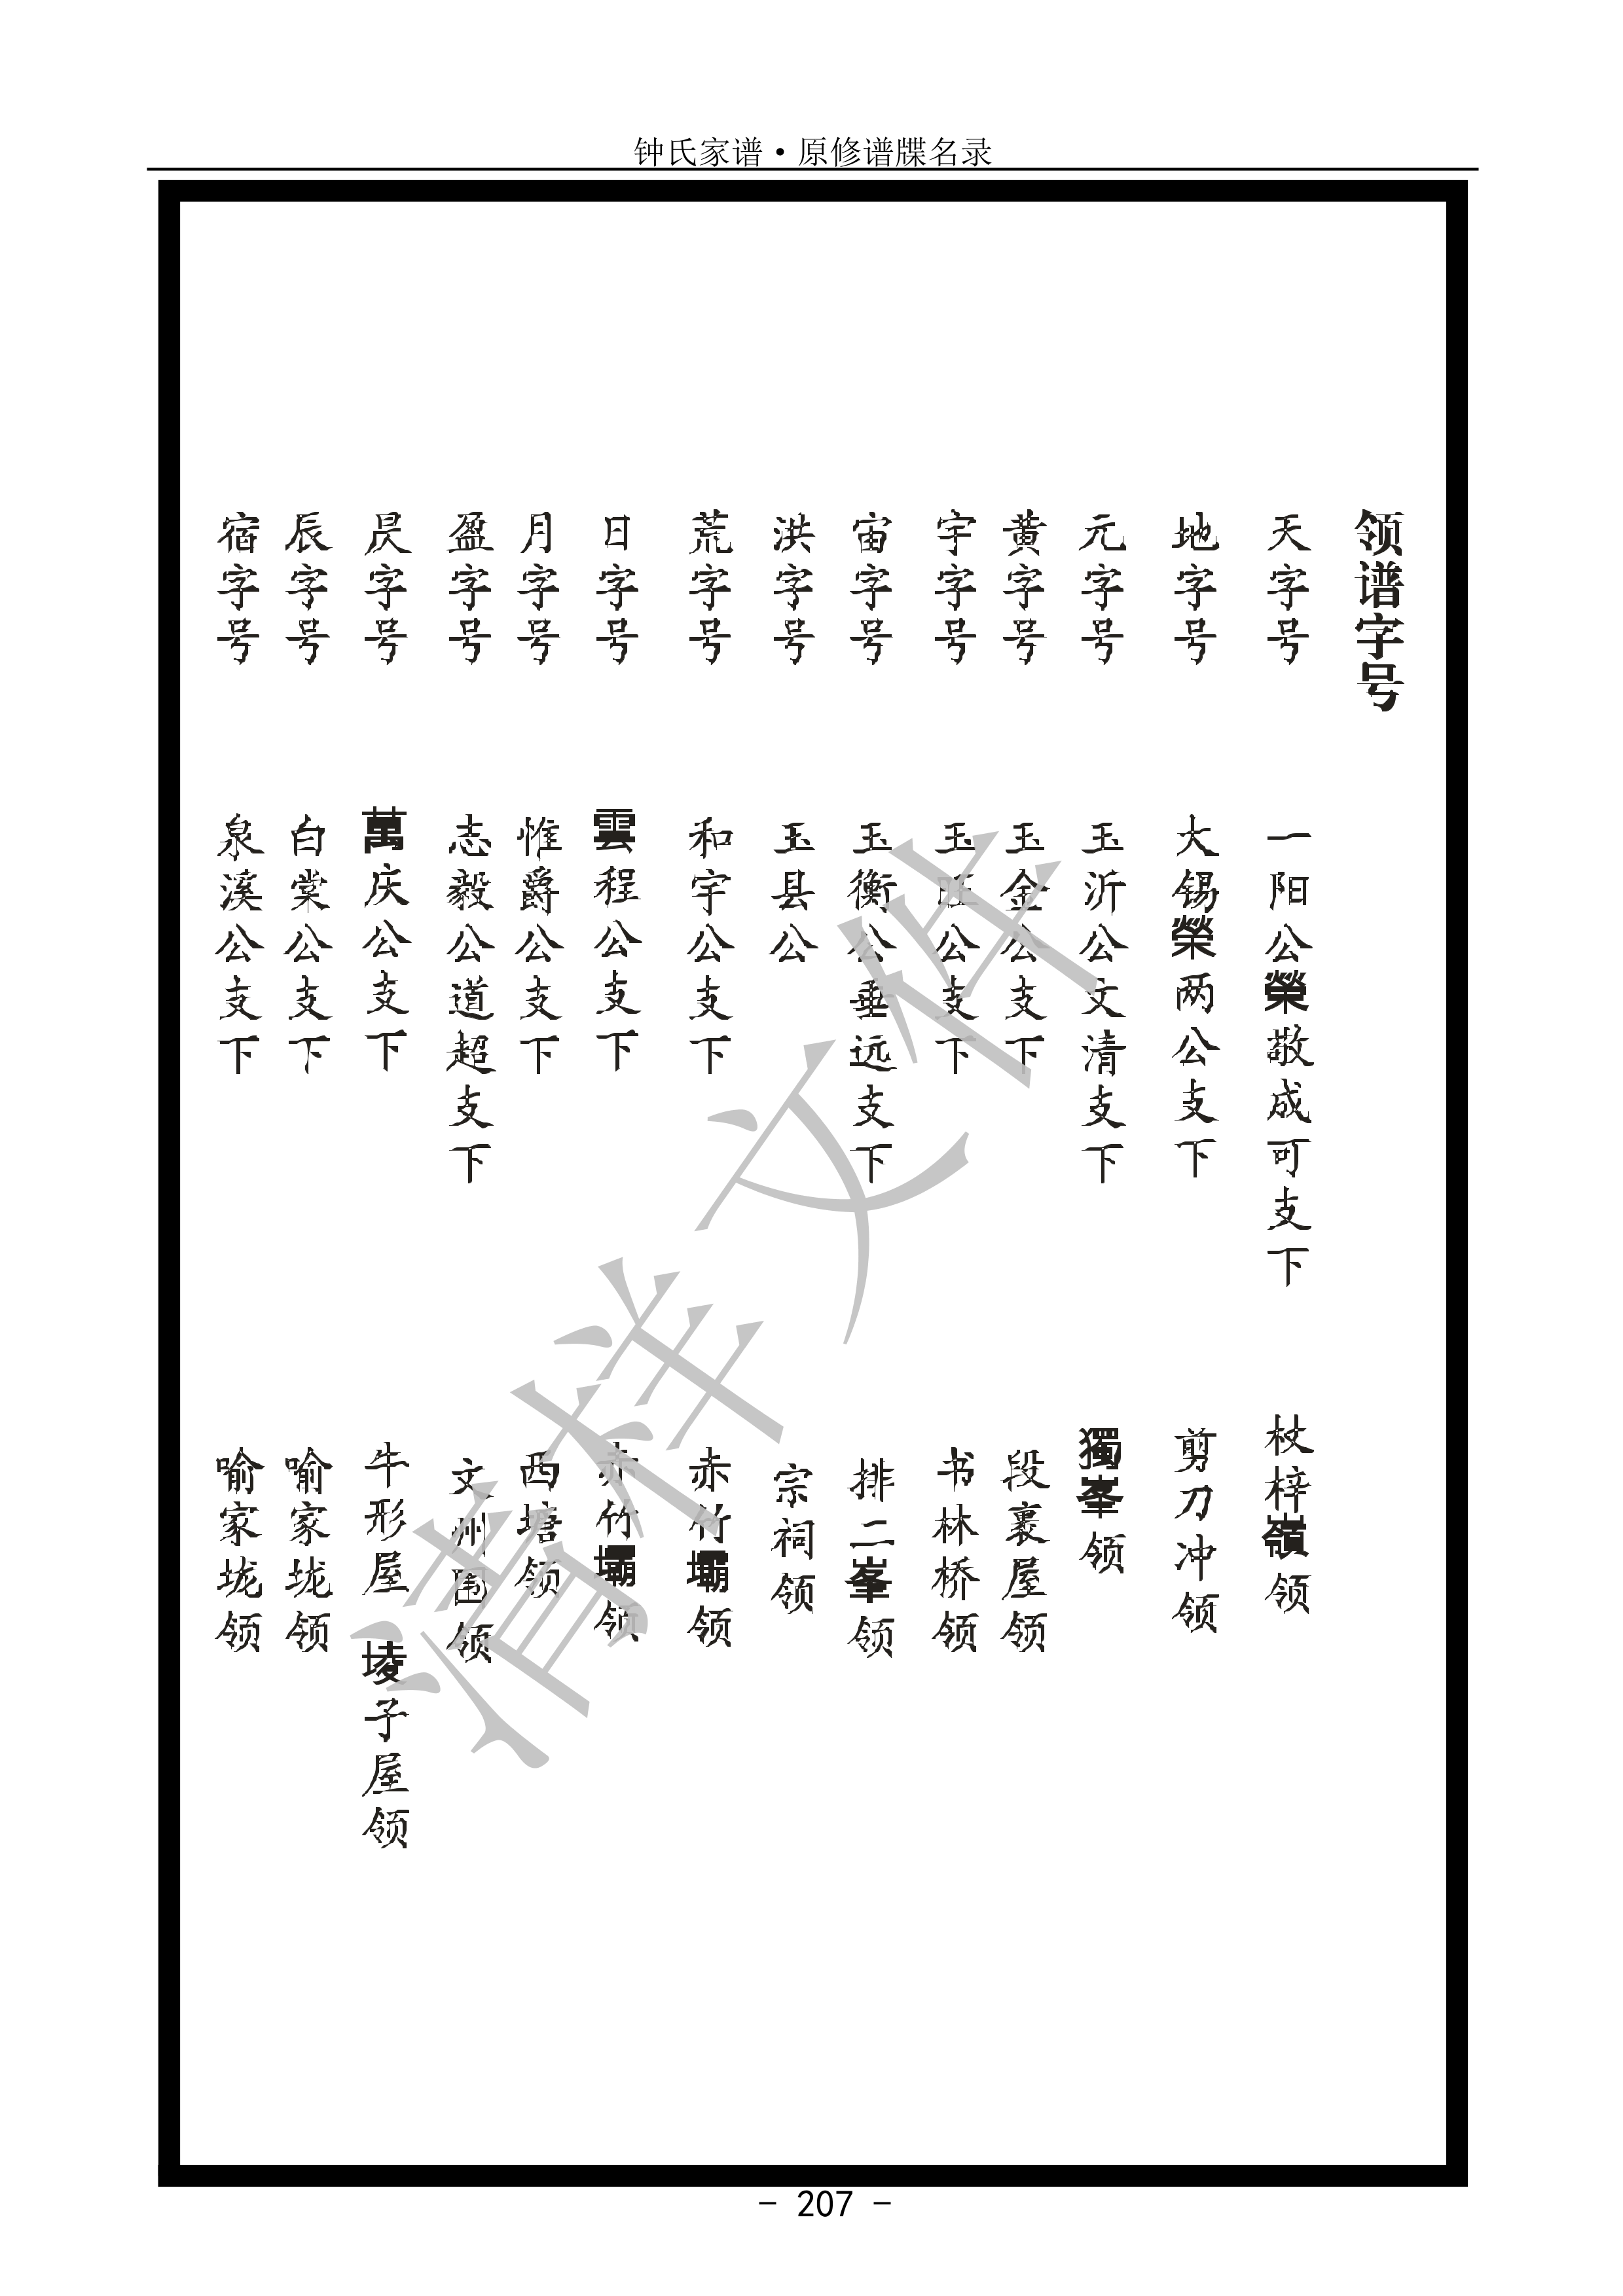 钟氏家谱·原修谱牒名录
领谱字号
天字号 一阳公榮敬成可支下 杖梓嶺领
地字号 大锡榮两公支下 剪刀冲领
元字号 玉沂公文清支下 獨峯领
黄字号 玉金公支下 段裹屋领
宇字号 玉旺公支下 书林桥领
宙字号 玉衡公垂远支下 排二峯领
洪字号 玉县公 宗祠领
荒字号 和宇公支下 赤竹壩领
日字号 雲程公支下 赤竹壩领
月字号 惟爵公支下 西塘领
盈字号 志毅公道超支下 文州围领
昃字号 萬庆公支下 牛形屋 堎子屋领
辰字号 白棠公支下 喻家垅领
宿字号 泉溪公支下 喻家垅领
清样文件
- 207 -